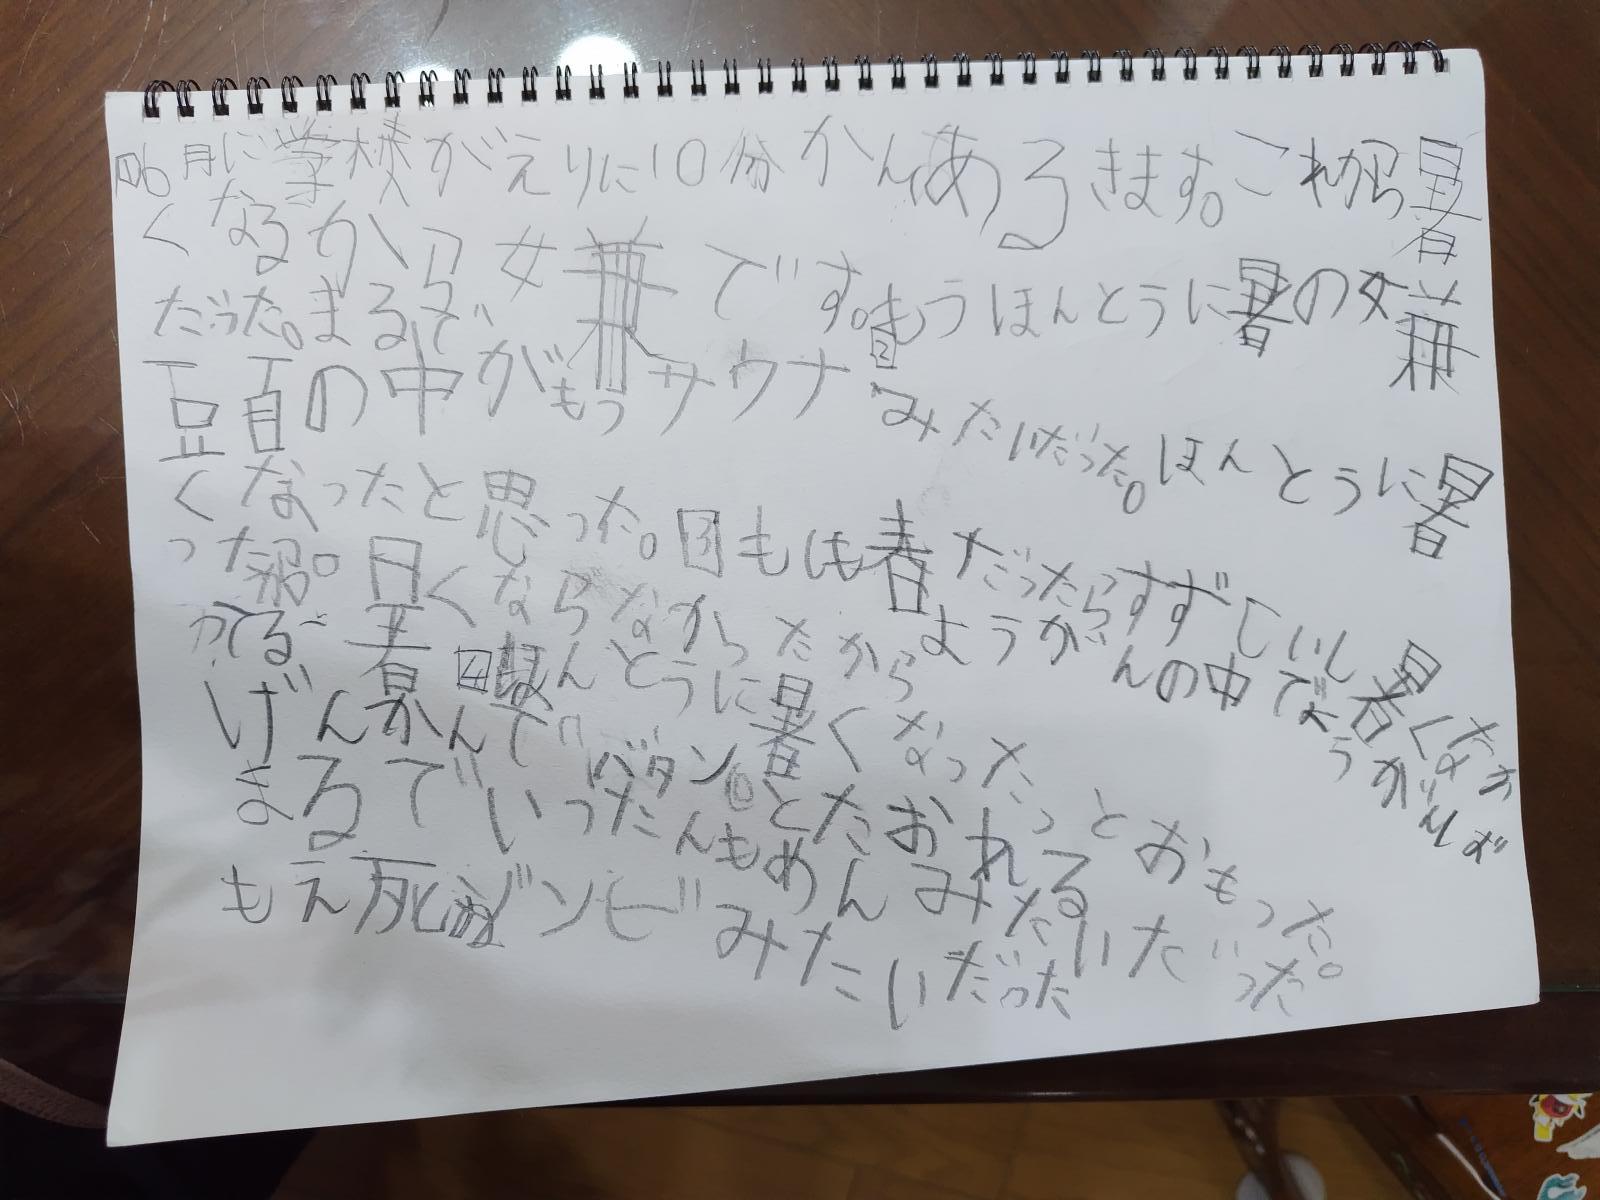 ①6月に学校がえりに10分かんあろきます。これから暑
くなるから嫌です。②もうほんとうに暑の嫌
だった。まるで
頭の中がもうサウナみたいだった。ほんとうに暑
くなったと思った。③もしも春だったらすずしいし暑くなか
った。暑くならなかったから
ようがんの中で
④ほんとうに暑くなったっとおもった。
げんかんでバタンとたおれる
まるでいったんもめんみたいだった
もえ死ゾンビみたいだった